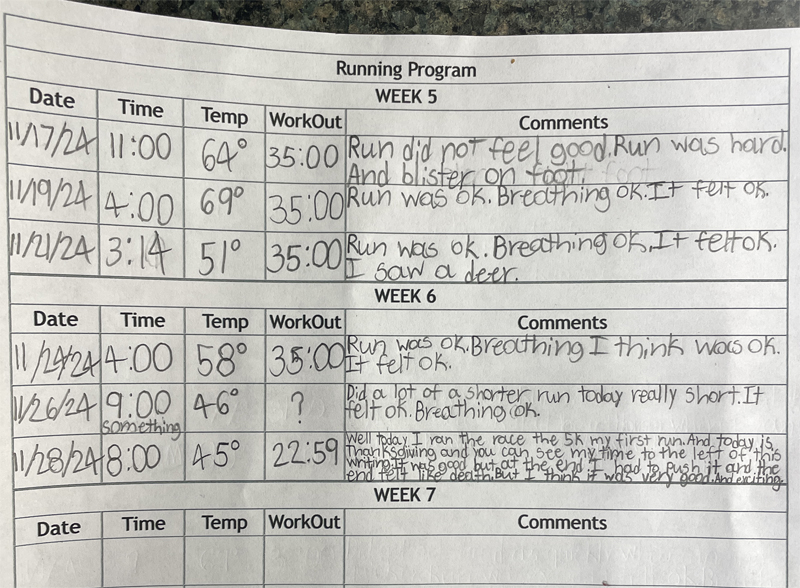 Running Program
WEEK 5
Date Time Temp WorkOut Comments
11/17/24 11:00 64° 35:00 Run did not feel good. Run was hard.
And blister on foot.
11/19/24 4:00 69° 35:00 Run was ok. Breathing ok. It felt ok.
11/21/24 3:14 51° 35:00 Run was ok. Breathing ok. It felt ok.
I saw a deer.
WEEK 6
Date Time Temp WorkOut Comments
11/24/24 4:00 58° 35:00 Run was ok. Breathing I think was ok.
It felt ok.
11/26/24 9:00 46° ? Did a lot of a shorter run today really short. It
something felt ok. Breathing ok.
11/28/24 8:00 45° 22:59 Well today I ran the race the 5k my first run. And today is
Thanksgiving and you can see my time to the left of this
writing. It was good but at the end I had to push it and the
end felt like death. But I think it was very good. And exciting.
WEEK 7
Date Time Temp WorkOut Comments